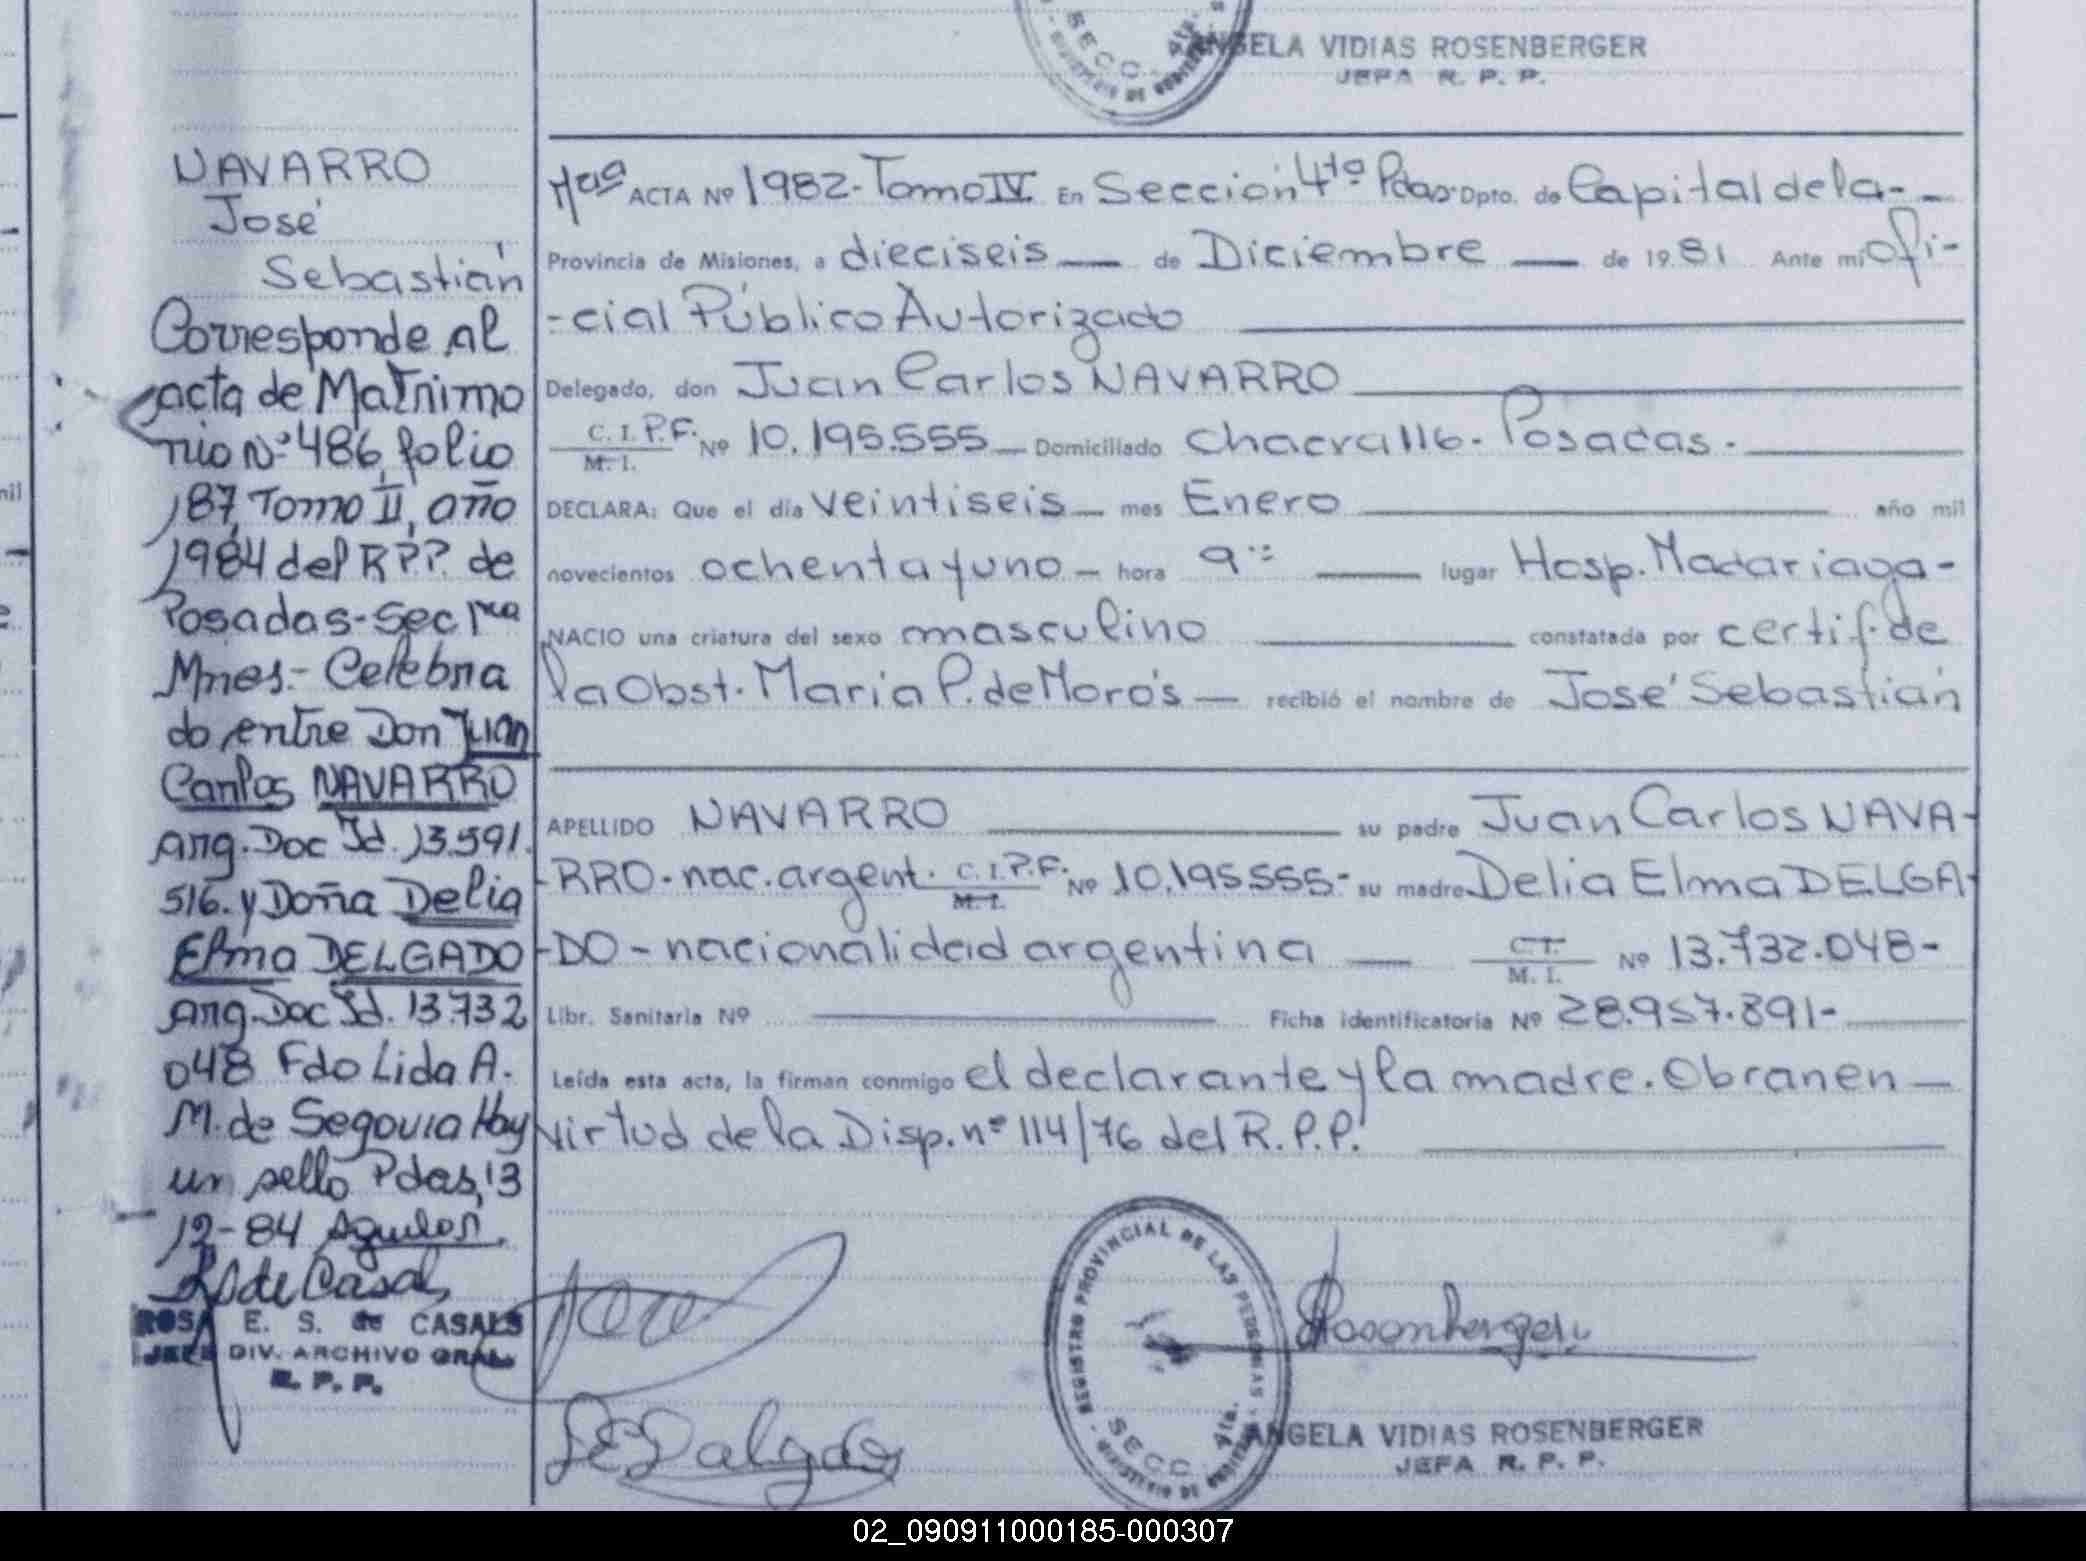 ANGELA VIDIAS ROSENBERGER
JEFA R. P. P.
SECC. 4ta.
NAVARRO
José
Sebastián
Corresponde al
acta de Matrimo
nio Nº 486, folio
187, Tomo II, año
1984 del R.P.P. de
Posadas-Sec 1ra
Mnes.- Celebra
do entre Don Juan
Carlos NAVARRO
Arg. Doc Id. 13.591.
516. y Doña Delia
Elma DELGADO
Arg. Doc Id. 13.732
048 Fdo Lida A.
M. de Segovia Hay
un sello Pdas, 13
12-84
de Casals
ROSA E. S. de CASALS
JEFE DIV. ARCHIVO GRAL.
R. P. P.
ACTA Nº 1982-Tomo IV En Sección 4ta Pdas. Dpto. de Capital de la-
Provincia de Misiones, a dieciseis de Diciembre de 1981 Ante mi ofi-
-cial Público Autorizado
Delegado, don Juan Carlos NAVARRO
C. I. P.F. M. I. Nº 10.195.555 Domiciliado Chacra 116. Posadas.
DECLARA: Que el día veintiseis mes Enero año mil
novecientos ochenta y uno hora 9 lugar Hosp. Madariaga-
NACIO una criatura del sexo masculino constatada por certif. de
la Obst. Maria P. de Moros recibió el nombre de José Sebastián
APELLIDO NAVARRO su padre Juan Carlos NAVA-
-RRO-nac. argent. C. I. P.F. M. I. Nº 10.195.555- su madre Delia Elma DELGA-
-DO-nacionalidad argentina C.I. M. I. Nº 13.732.048-
Libr. Sanitaria Nº Ficha identificatoria Nº 28.957.891-
Leída esta acta, la firman conmigo el declarante y la madre. Obran en
virtud de la Disp. nº 114/76 del R.P.P.
REGISTRO PROVINCIAL DE LAS PERSONAS
SECC. 4ta.
Rosenberger
DEDelgado
ANGELA VIDIAS ROSENBERGER
JEFA R. P. P.
02_090911000185-000307